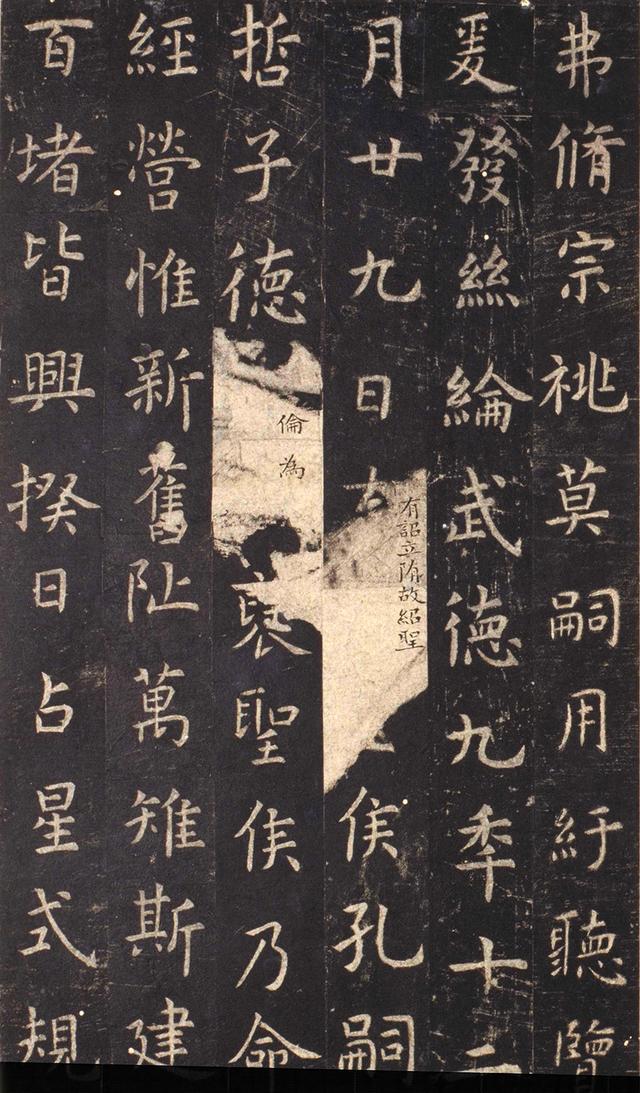 弗脩宗祧莫嗣用紆聽覽
爰發絲綸武德九秊十二
月廿九日
有詔立隋故紹聖
侯孔嗣
哲子德
倫為
襃聖侯乃命
經營惟新舊阯萬雉斯建
百堵皆興揆日占星式規